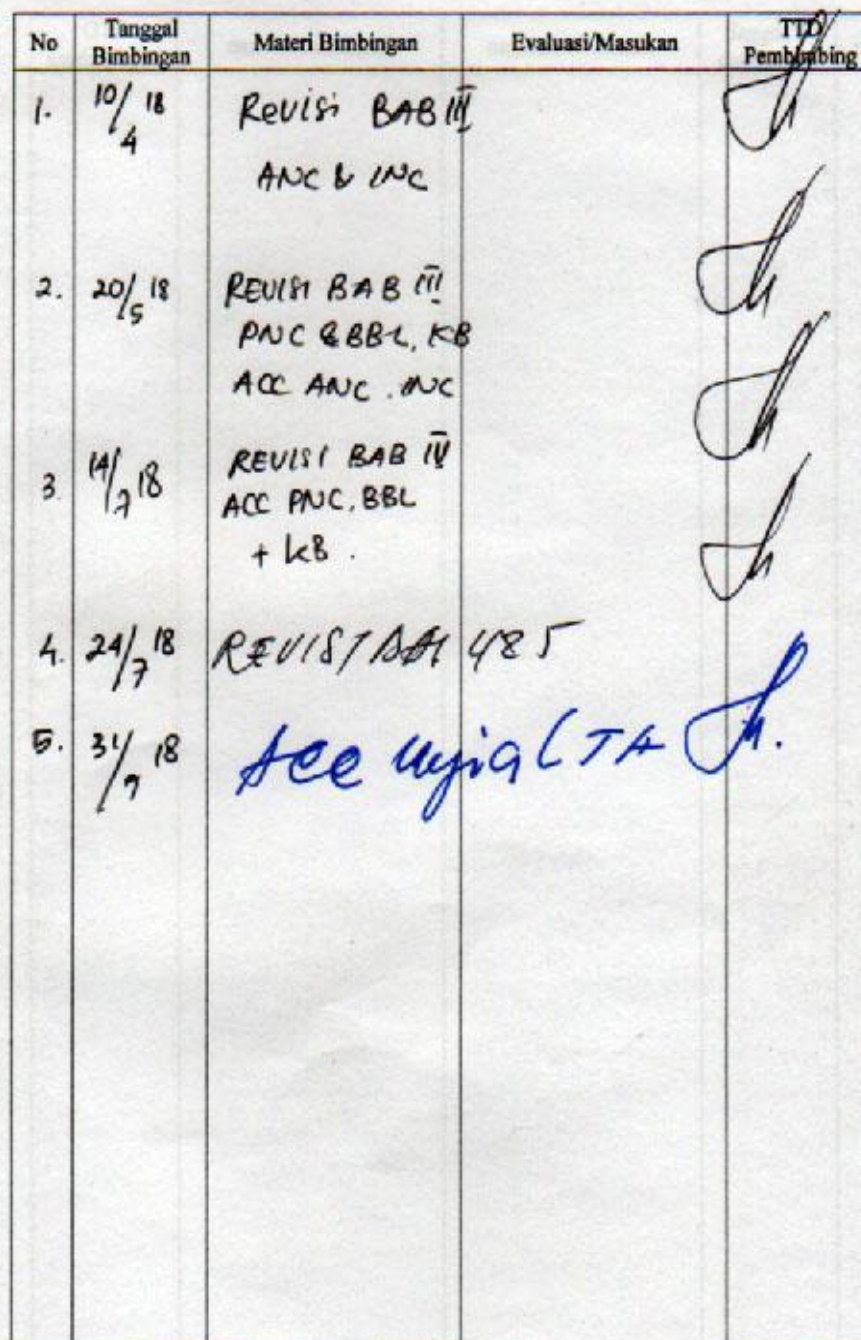 No Tanggal Bimbingan Materi Bimbingan Evaluasi/Masukan TTD Pembimbing
1. 10/4 18 Revisi BAB III
ANC & INC
2. 20/5 18 REVISI BAB III
PNC & BBL, KB
ACC ANC. INC
3. 14/7 18 REVISI BAB IV
ACC PNC, BBL
+ KB.
4. 24/7 18 REVISI
5. 31/7 18 Acc LTA